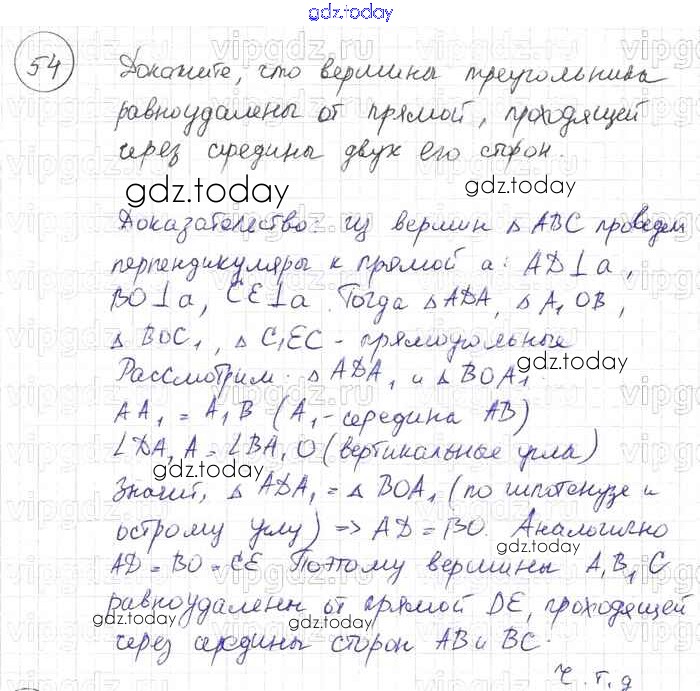 gdz.today
54
Докажите, что вершины треугольника
равноудалены от прямой, проходящей
через середины двух его сторон.
gdz.today
gdz.today
Доказательство: из вершин △ ABC проведем
перпендикуляры к прямой a: AD⊥a,
BO⊥a, CE⊥a. Тогда △ ADA, △ A₁OB,
△ BOC₁, △ C₁EC - прямоугольные
gdz.today
Рассмотрим: △ ADA₁ и △ BOA₁.
AA₁ = A₁B (A₁-середина AB)
∠DA₁A = ∠BA₁O (вертикальные углы)
gdz.today
Значит, △ ADA₁ = △ BOA₁ (по гипотенузе и
острому углу) => AD = BO. Аналогично
gdz.today
AD = BO = CE Поэтому вершины A, B, C
равноудалены от прямой DE, проходящей
gdz.today
через середины сторон AB и BC.
ч.т.д